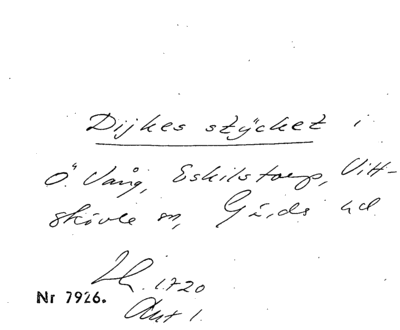 Dijkes stÿcket i
Ö. Vång, Eskilstorp, Vitt-
skövle sn, Gärds hd
Lk. 1720
Nr 7926.
Akt 1.